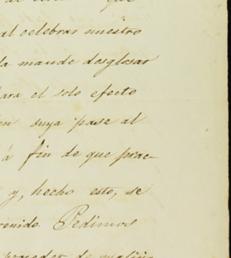 al celebrar nuestro
la mande desglosar
para el solo efecto
suya pase al
á fin de que prac-
y, hecho esto, se
Pedimos
de